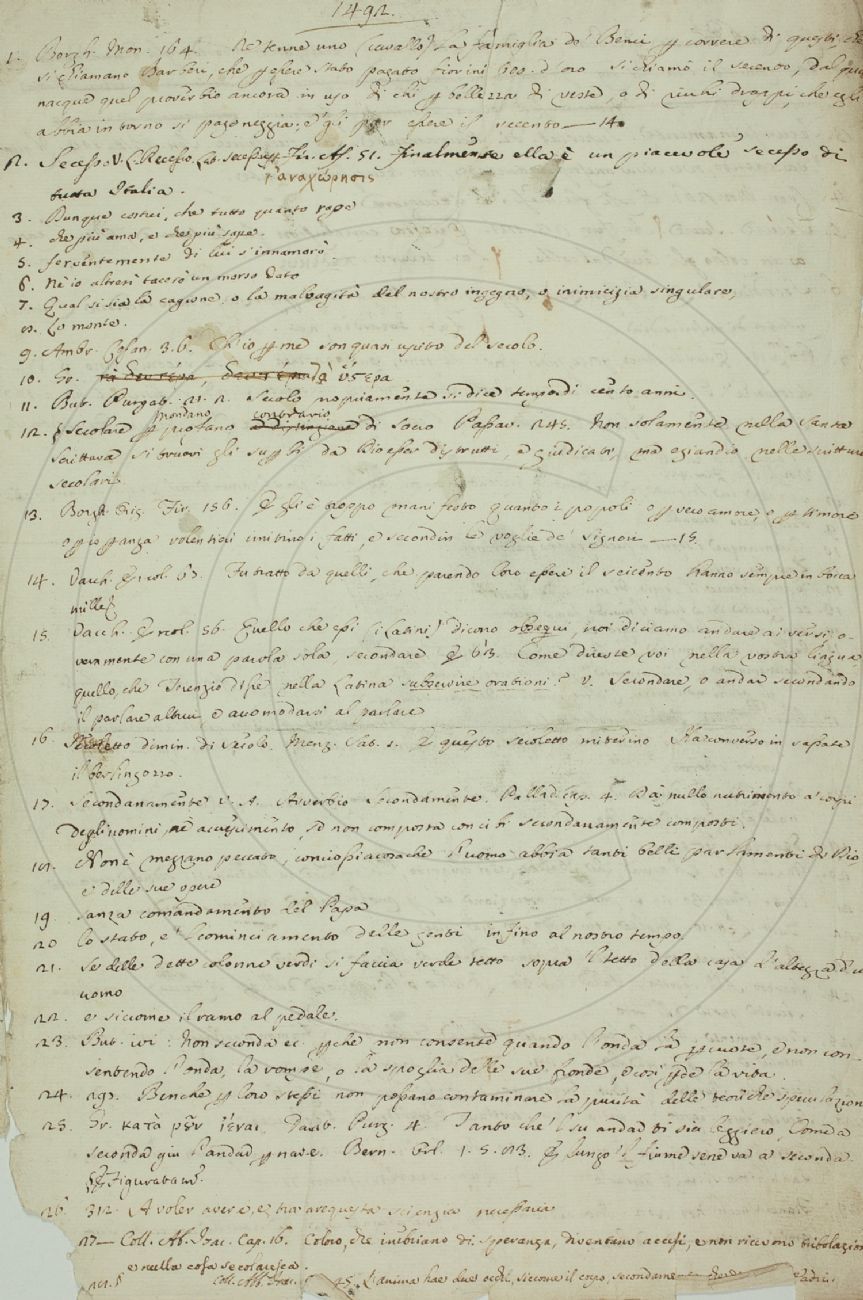 1492.
1. Borgh. Mon. 164. Ne tenne uno (cavallo) la famiglia de' Benci p correre di questi, che
si chiamano Barberi, che p esere stato pagato fiorini 600. d'oro si chiamò il secento, dal
nacque quel proverbio ancora in uso di chi p bellezza di veste, o di ricchi drappi, che egli
abbia intorno si pagoneggia; e' gli par esere il secento — 14
2. Secesso. V. L. Recesso. Lat. secessus Fir. As. 51. Finalmente ella è un piacevole secesso di
ἀναχώρησις
tutta Italia.
3. Dunque costui, che tutto quanto rape
4. che più ama, e che più sape.
5. ferventemente di lui s'innamorò
6. Nè io altresì tacerò un morso dato
7. Qual si sia la cagione, o la malvagità del nostro ingegno, o inimicizia singulare,
8. Lo monte.
9. Ambr. Cofan. 3. 6. Ch'io p me son quasi uscito del secolo.
10. Gr. τὰ δευτέρα, ὕστερα
11. But. Purgat. 21. 2. Secolo propiamente si dice tempo di cento anni.
mondano contrario
12. Secolare p profano di Sacro Passav. 245. Non solamente nella santa
Scrittura si truova gli superbi da Dio esser distrutti, e giudicati, ma eziandio nelle scritture
secolari
13. Borgh. Orig. Fir. 156. Egli è troppo manifesto quando i popoli o p vero amore, o p timore
o p isperanza volentieri imitino i fatti, e secondin le voglie de' signori — 15
14. Varch. Ercol. 63. Fu tratto da quelli, che parendo loro essere il seicento hanno sempre in bocca
mille
15. Varch. Ercol. 56. Quello che essi (i Latini) dicono obsequi, noi diciamo andare ai versi, o-
veramente con una parola sola, secondare. E 63. Come direste voi nella vostra lingua,
quello, che Terenzio disse nella Latina subservire orationi? V. Secondare, o andar secondando
il parlare altrui, e accomodarsi al parlare
16. Secoletto dimin. di secolo. Menz. Sat. 1. E questo secoletto miterino Ha converso in sapate
il berlingozzo.
17. Secondanamente V. A. Avverbio Secondamente. Pallad. cap. 4. Dà nullo nutrimento a' corpi
degli uomini, nè accrescimento, se non composta con cibi secondanamente composti.
18. Non è mezzano peccato, conciossiacosachè l'uomo abbia tanti belli parlamenti di Dio
e delle sue opere
19. sanza comandamento del Papa
20 lo stato, e 'l cominciamento delle genti infino al nostro tempo.
21. Se delle dette colonne verdi si faccia verde tetto sopra 'l tetto della casa d'altezza d'u
uomo
22. e siccome il ramo al pedale.
23. But. ivi: Non seconda ec. pche non consente quando l'onda la pcuote, e non con-
sentendo l'onda, la rompe, o la spoglia delle sue fronde, e così pde la vita
24. 298. Benche p loro stessi non possano contaminare la purità delle teoriche speculazion
25. Gr. κατὰ ῥοῦν ἰέναι, Dant. Purg. 4. Tanto che 'l su andar ti sia leggiero, Com'a
seconda giù l'andar p nave. Bern. Orl. 1. 5. 83. E lungo 'l fiume sene va a seconda.
Figuratam.
26. 312. A voler avere, e trarre questa scienza necessaria
27— Coll. Ab. Isac. Cap. 16. Coloro, che inebriano di speranza, diventano accesi, e non ricevono tribolazion
e nulla cosa secolaresca.
28. Coll. Abb. Isac. 45. L'anima hae due occhi, siccome il corpo, secondame Padri.